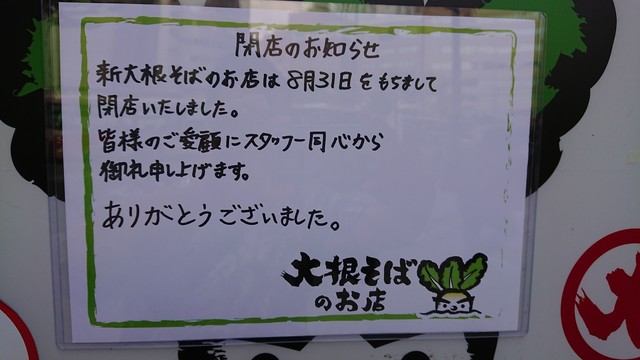 閉店のお知らせ
新大根そばのお店は8月31日をもちまして
閉店いたしました。
皆様のご愛顧にスタッフ一同心から
御礼申し上げます。
ありがとうございました。
大根そば
のお店